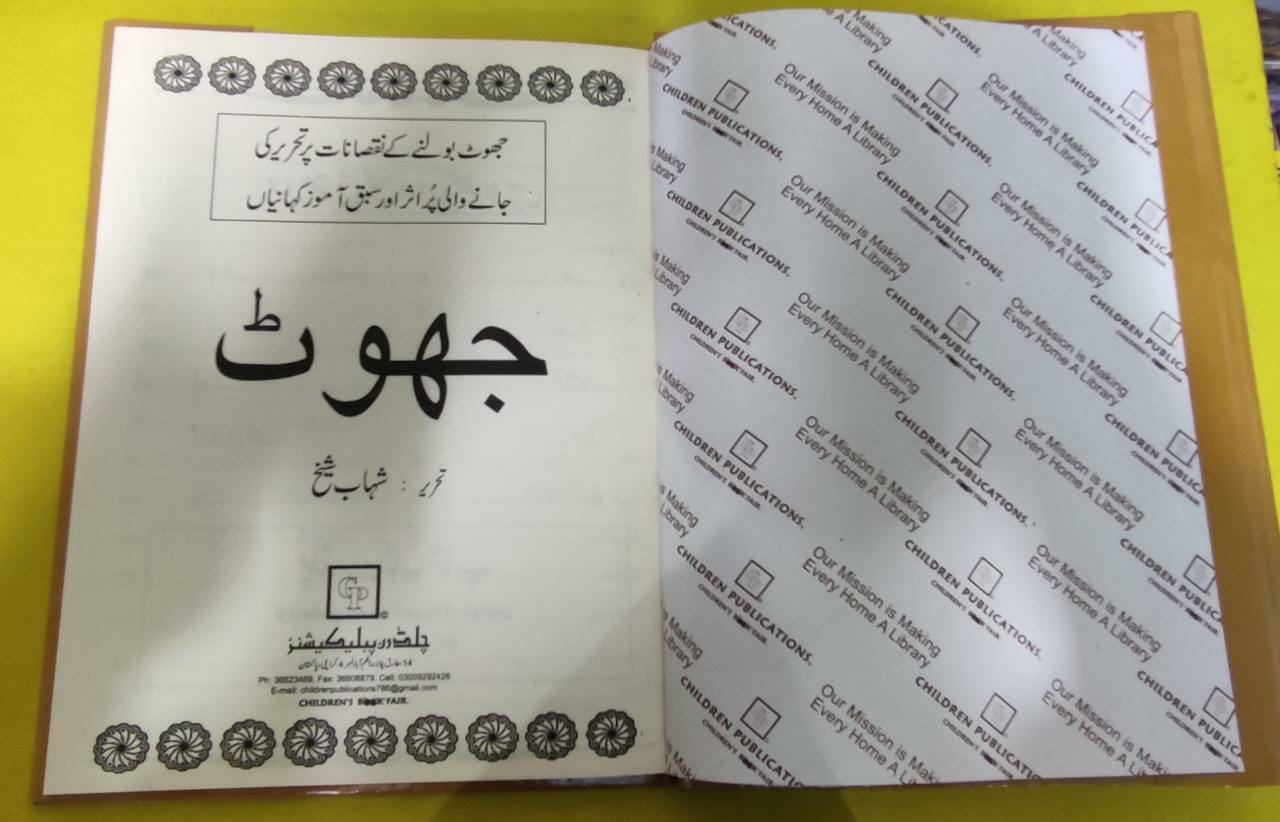 جھوٹ بولنے کے نقصانات پر تحریر کی
جانے والی پُر اثر اور سبق آموز کہانیاں
جھوٹ
تحریر : شہاب شیخ
CP
چلڈرن پبلیکیشنز
Ph: 36623489, Fax: 36608879, Cell: 03009292426
E-mail: childrenpublications786@gmail.com
CHILDREN'S BOOK FAIR.
CHILDREN PUBLICATIONS.
CHILDREN'S BOOK FAIR.
Our Mission is Making
Every Home A Library